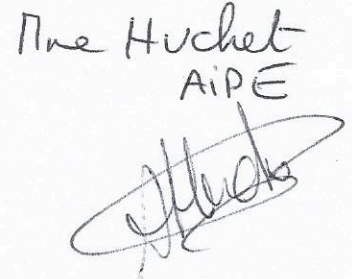 Mme Huchet
AiPE